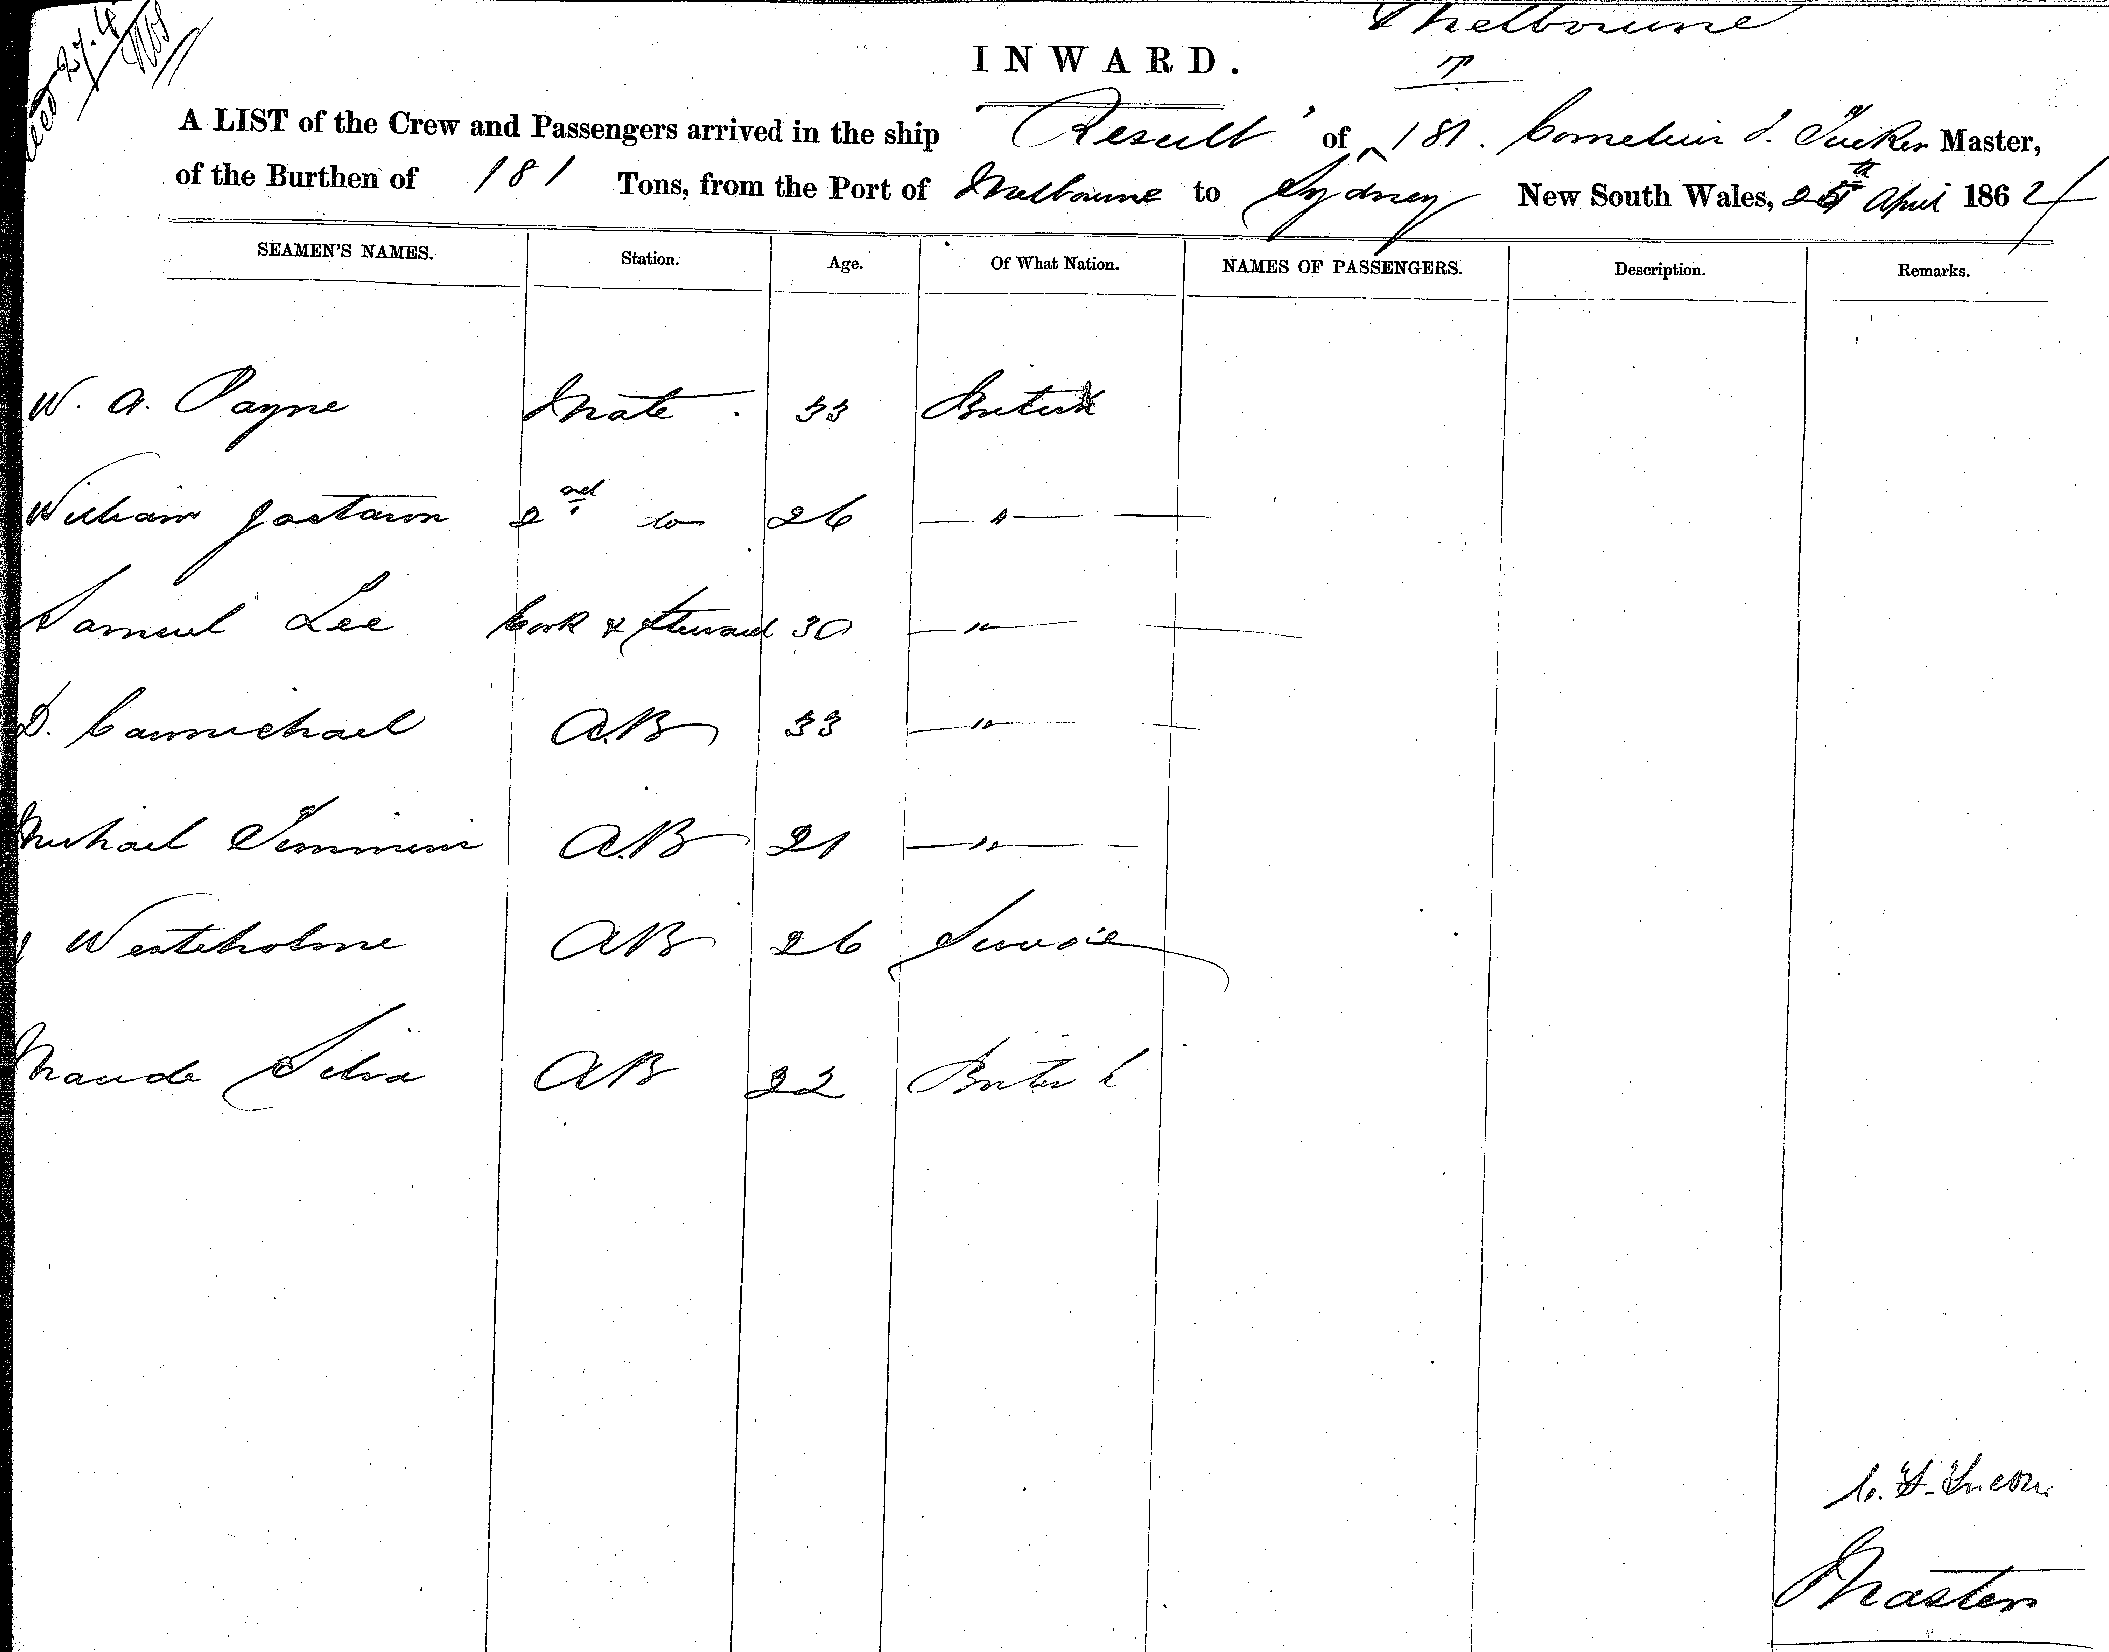 Melbourne
INWARD.
A LIST of the Crew and Passengers arrived in the ship "Result" of 181. Cornelius Tucker Master,
of the Burthen of 181 Tons, from the Port of Melbourne to Sydney New South Wales, 25th April 186
SEAMEN'S NAMES. Station. Age. Of What Nation. NAMES OF PASSENGERS. Description. Remarks.
W. A. Payne Mate. 33 British
William 2nd do 26 — " —
Samuel Lee Cook & Steward 30 — " —
D. Carmichael AB 33 — " —
Michael AB 21 — " —
Westeholme AB 26
Silva AB 22 British
Master